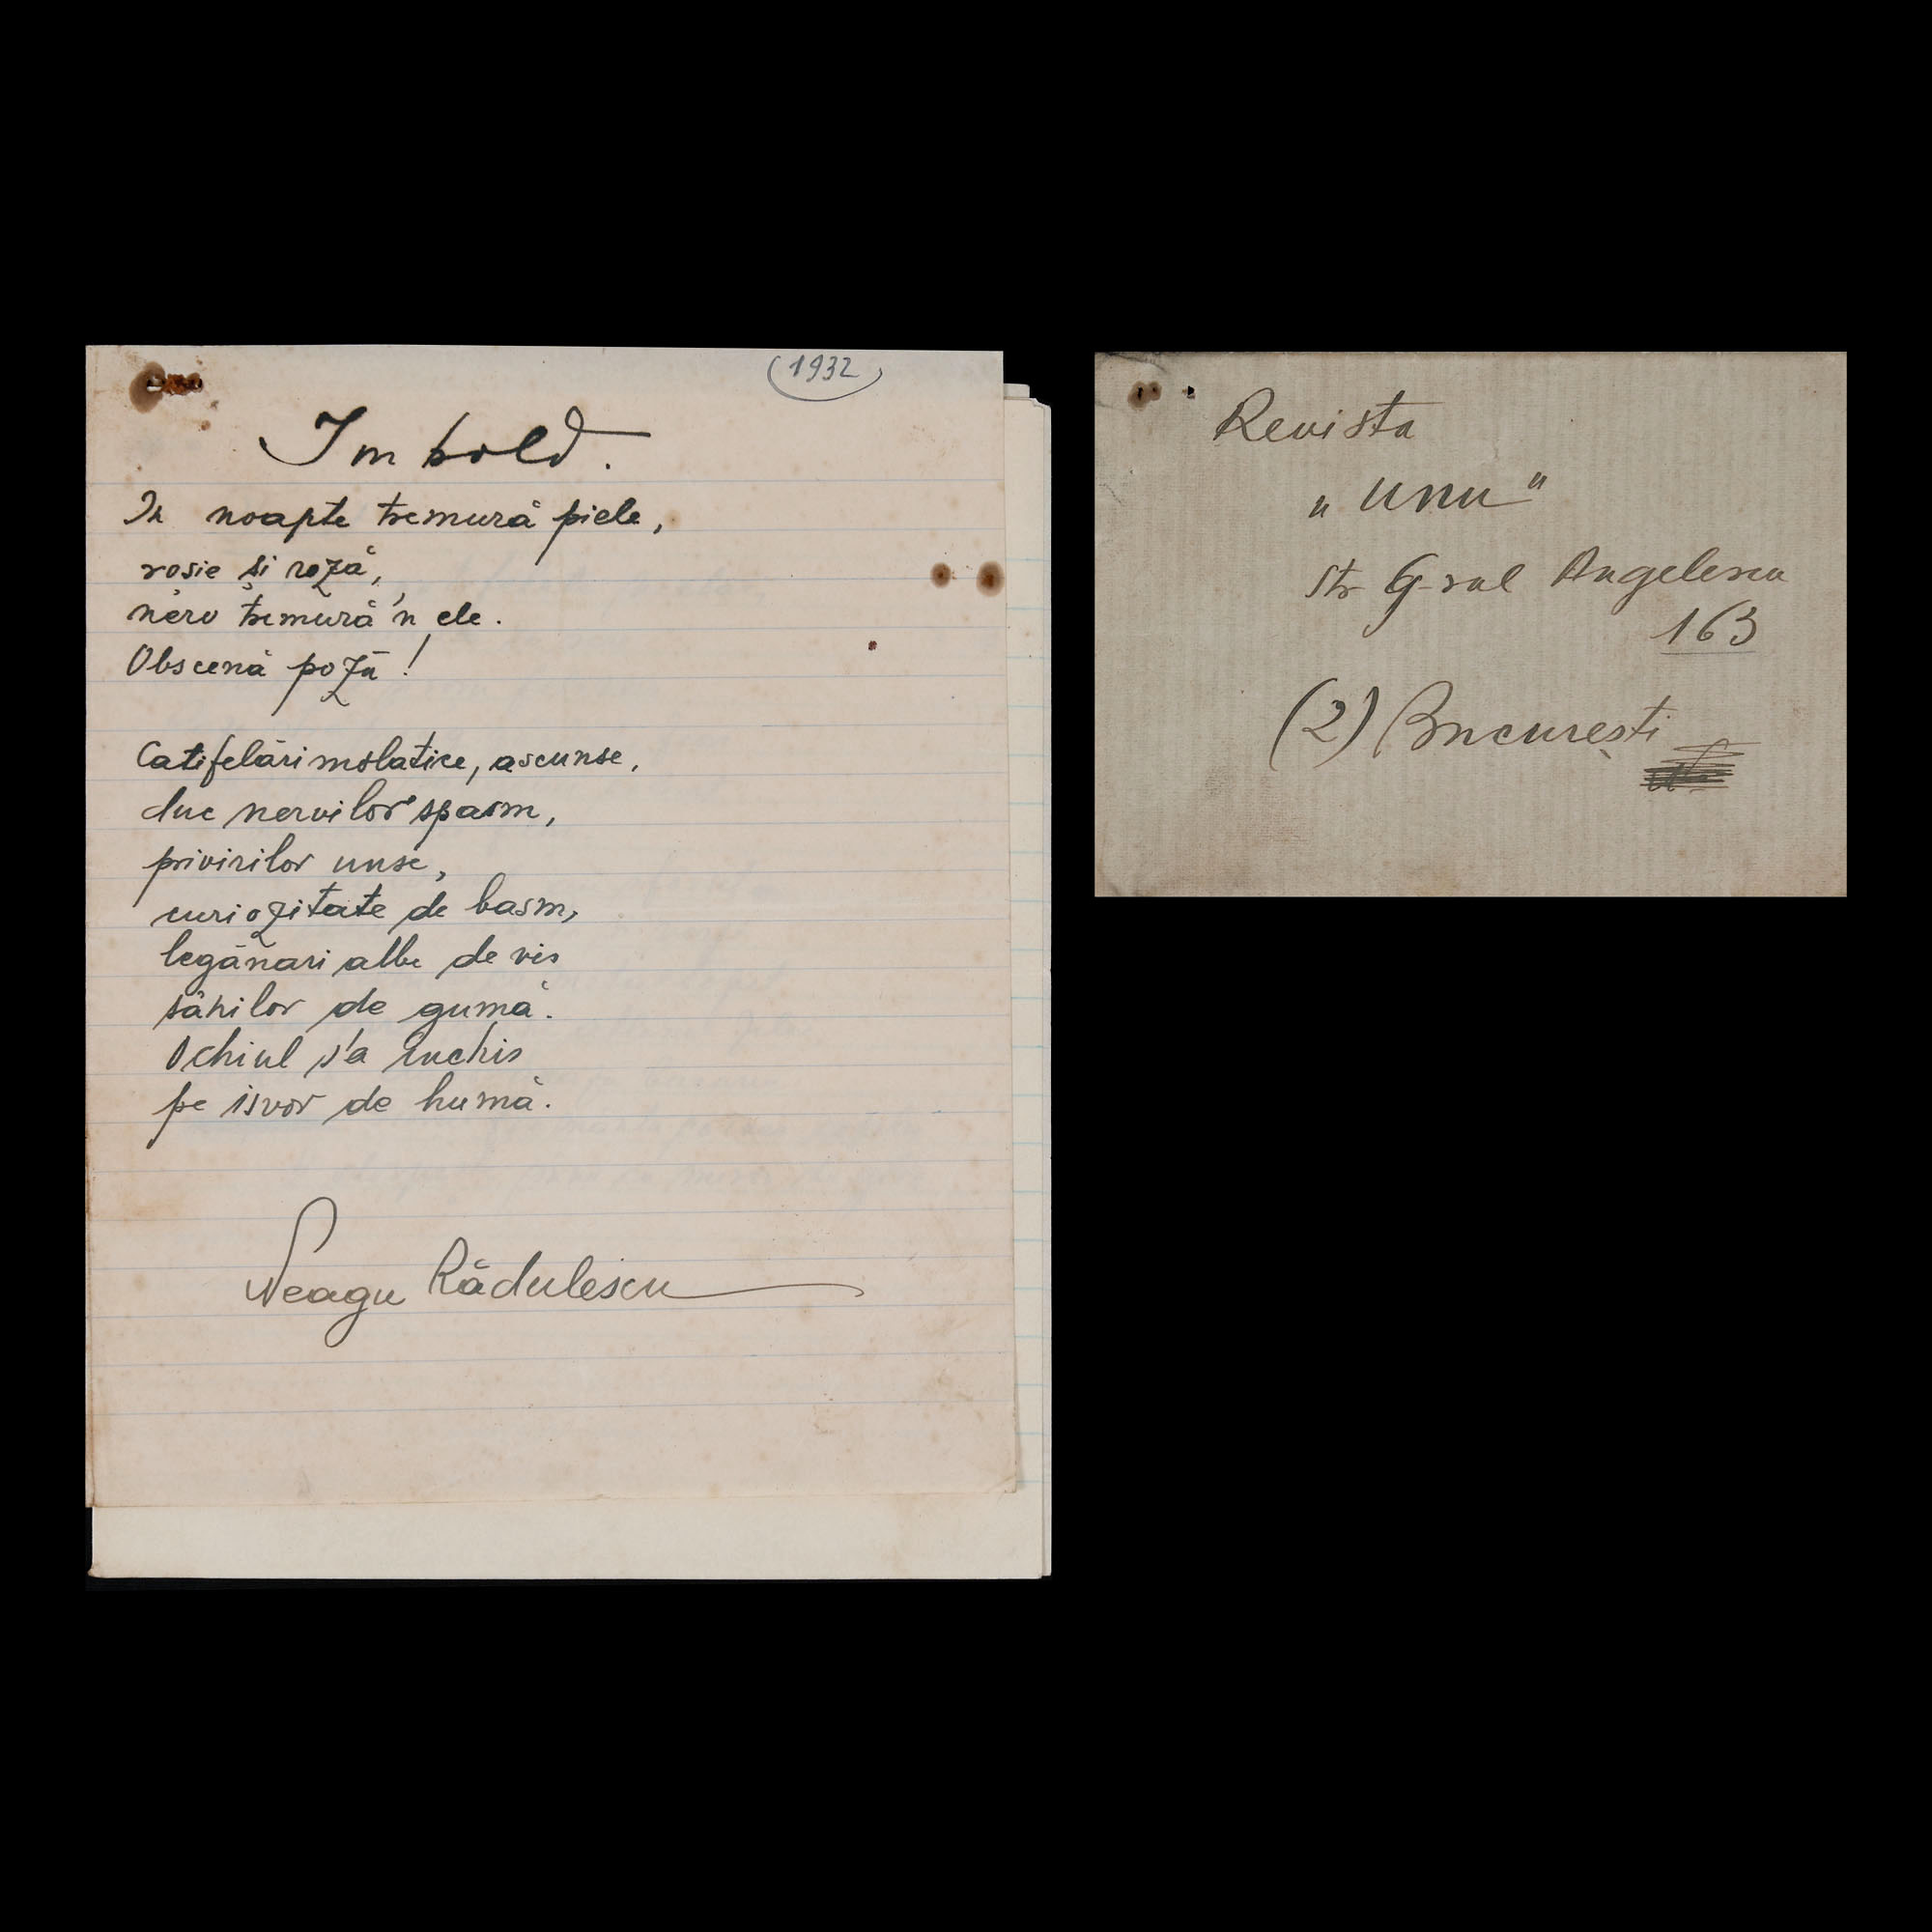 (1932)
Imbold.
In noapte tremură piele,
rosie și roză,
nerv tremură 'n ele.
Obscenă poză!
Catifelări molatice, ascunse,
duc nervilor spasm,
privirilor unse,
curiozitate de basm,
legănari albe de vis
sânilor de gumă.
Ochiul s'a închis
pe isvor de humă.
Neagu Rădulescu
Revista
„Unu"
Str G-ral Angelescu
163
(2) București